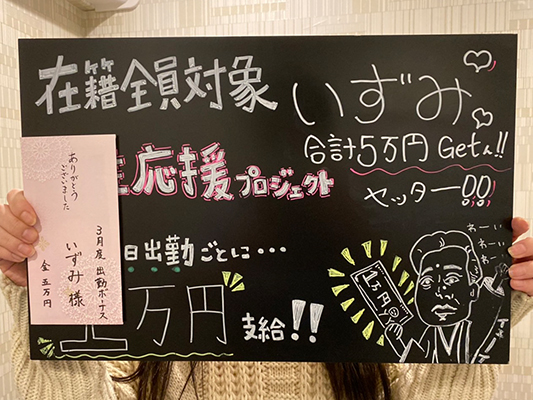 在籍全員対象
いずみ
合計5万円Getん!!
応援プロジェクト
ヤッター!!
日出勤ごとに・・・
万円
支給!!
ありがとう
ございました
3月度 出勤ボーナス
いずみ様
金 五万円
わーい
わーい
わーい
1万円